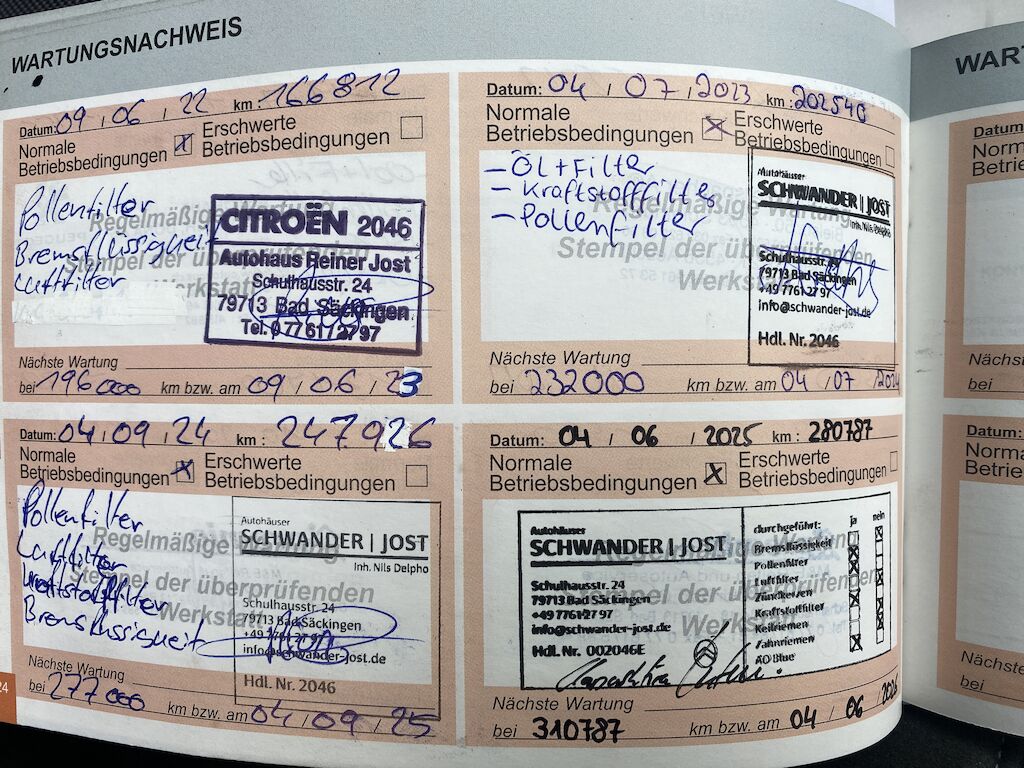 WARTUNGSNACHWEIS
Datum: 09 / 06 / 22 km 166812
Normale Betriebsbedingungen x Erschwerte Betriebsbedingungen
Pollenfilter
Bremsflüssigkeit
Luftfilter
Regelmäßige Wartung
Stempel der überprüfenden
Werkstatt
CITROËN 2046
Autohaus Reiner Jost
Schulhausstr. 24
79713 Bad Säckingen
Tel. 07761 / 2797
Nächste Wartung
bei 196000 km bzw. am 09 / 06 / 23
Datum: 04 / 07 / 2023 km : 202540
Normale Betriebsbedingungen x Erschwerte Betriebsbedingungen
- Öl + Filter
- Kraftstofffilter
- Pollenfilter
Regelmäßige Wartung
Stempel der überprüfenden
Werkstatt
Autohäuser
SCHWANDER | JOST
Inh. Nils Delpho
Schulhausstr. 24
79713 Bad Säckingen
+49 7761 27 97
info@schwander-jost.de
Hdl. Nr. 2046
Nächste Wartung
bei 232000 km bzw. am 04 / 07 / 2024
Datum: 04 / 09 / 24 km : 247926
Normale Betriebsbedingungen x Erschwerte Betriebsbedingungen
Pollenfilter
Luftfilter
Kraftstoffilter
Bremsflussigheit
Regelmäßige Wartung
Stempel der überprüfenden
Werkstatt
Autohäuser
SCHWANDER | JOST
Inh. Nils Delpho
Schulhausstr. 24
79713 Bad Säckingen
+49 7761 27 97
info@schwander-jost.de
Hdl. Nr. 2046
Nächste Wartung
bei 277000 km bzw. am 04 / 09 / 25
24
Datum: 04 / 06 / 2025 km : 280787
Normale Betriebsbedingungen x Erschwerte Betriebsbedingungen
Regelmäßige Wartung
Stempel der überprüfenden
Werkstatt
Autohäuser
SCHWANDER | JOST
Schulhausstr. 24
79713 Bad Säckingen
+49 7761 27 97
info@schwander-jost.de
Hdl. Nr. 002046E
durchgeführt: ja nein
Bremsflüssigkeit
Pollenfilter
Luftfilter
Zündkerzen
Kraftstoffilter
Keilriemen
Zahnriemen
AD Blue
Nächste Wartung
bei 310787 km bzw. am 04 / 06 / 2026
WART
Datum
Norm
Betrie
Nächs
bei
Datum:
Norma
Betrie
Nächste
bei